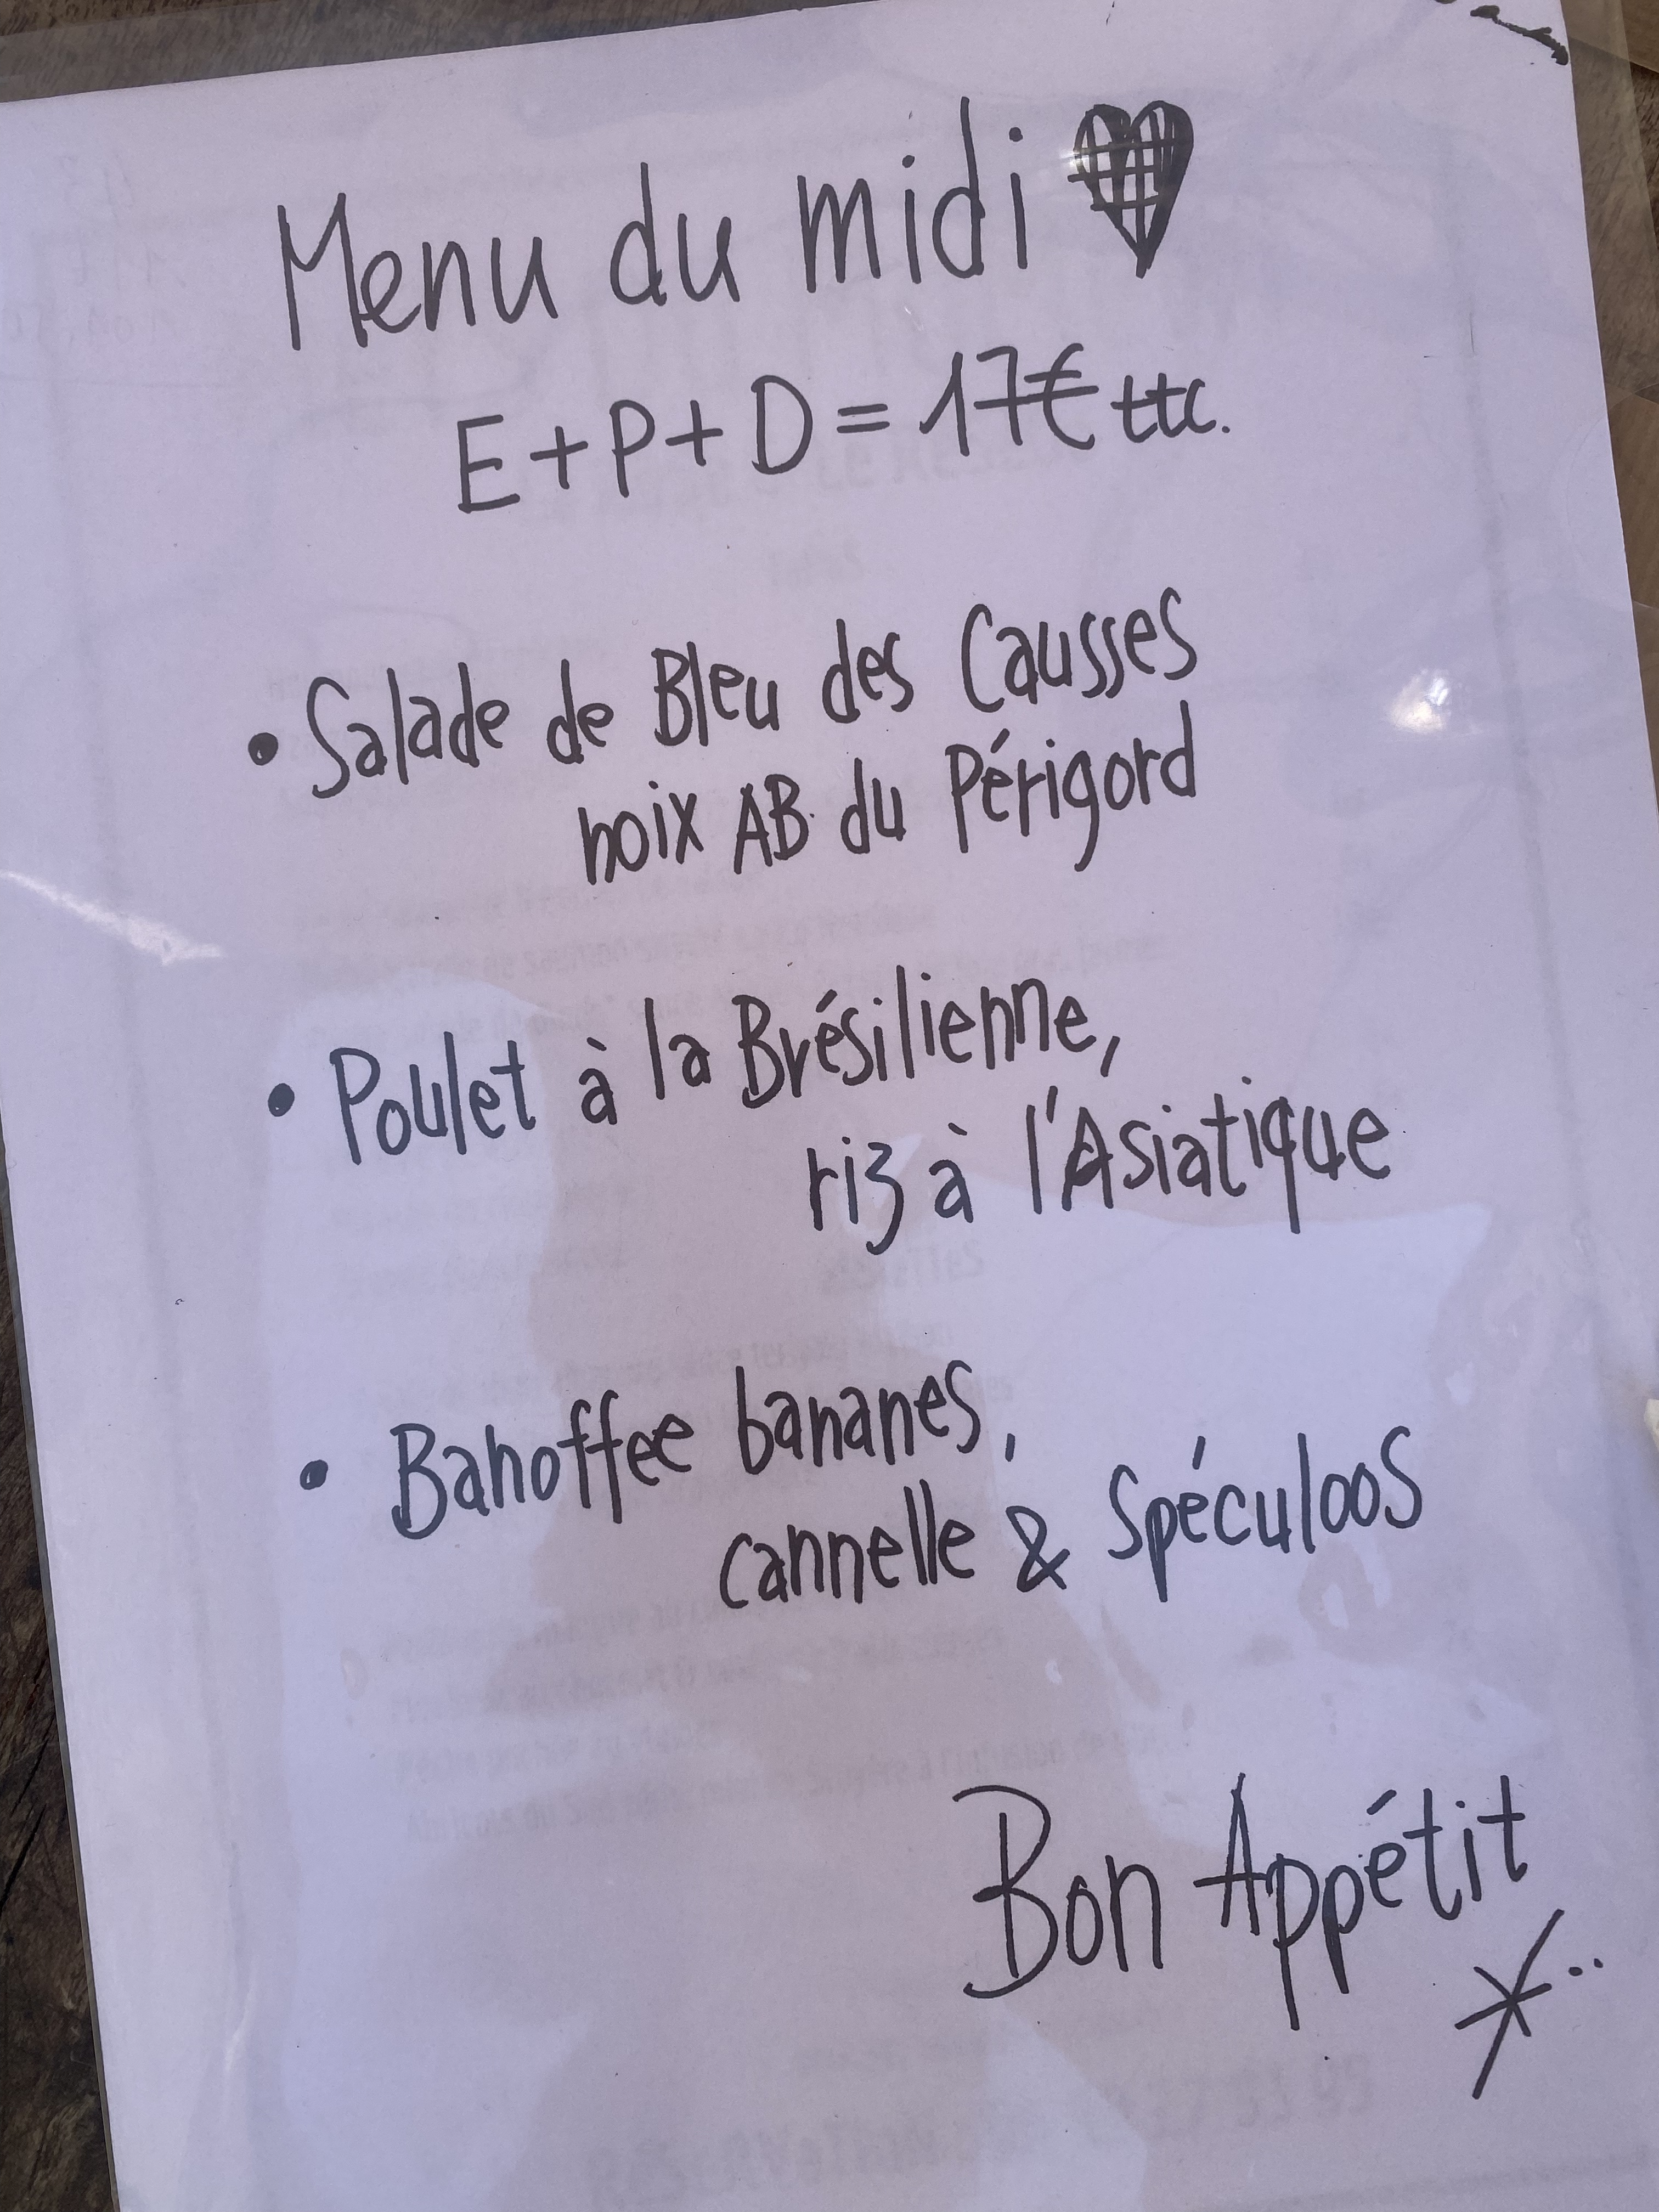 Menu du midi
E + P + D = 17€ ttc.
• Salade de Bleu des Causses
noix AB. du Périgord
• Poulet à la Brésilienne,
riz à l'Asiatique
• Banoffee bananes,
cannelle & Spéculoos
Bon Appétit